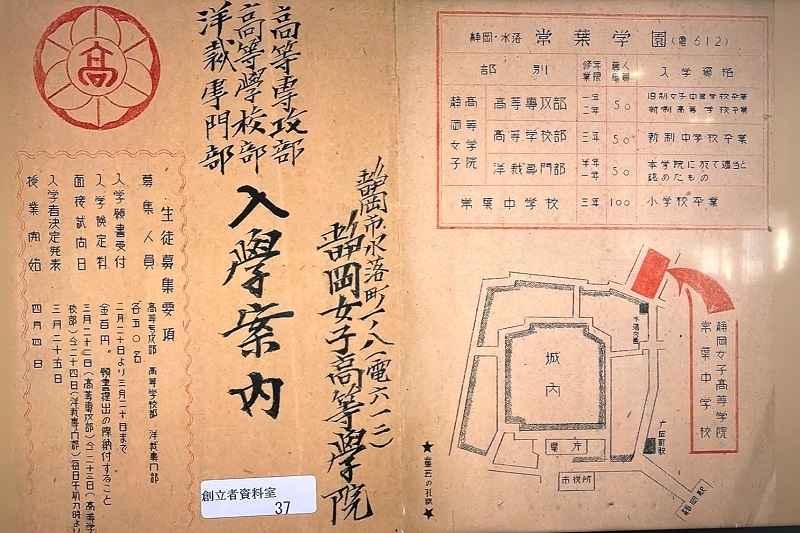 高
高等専攻部
高等學校部
洋裁専門部
入學案内
静岡市水落町一ノ八(電六一二)
静岡女子高等學院
生徒募集要項
募集人員 高等専攻部 高等学校部 洋裁専門部
各五〇名
入学願書受付 二月二十日より三月二十日まで
入学検定料 金百円。願書提出の際納付すること
面接試問日
入学者決定発表 三月二十五日
授業開始 四月四日
創立者資料室
37
静岡・水落 常葉学園(電612)
部別 修業年限 募集人員 入学資格
静岡高等女子学院
高等専攻部 一年 二年 50 旧制女子中等学校卒業 新制高等学校卒業
高等学校部 三年 50 新制中学校卒業
洋裁専門部 半年 一年 50 本学院に於て適当と認めたもの
常葉中学校 三年 100 小学校卒業
静岡女子高等学院
常葉中学校
水落交番
城内
県庁
市役所
静岡駅